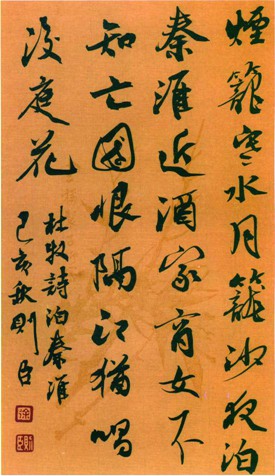 煙籠寒水月籠沙夜泊
秦淮近酒家商女不
知亡國恨隔江猶唱
後庭花
杜牧詩泊秦淮
己亥秋則臣